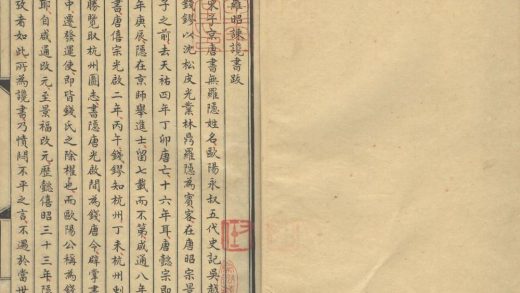 羅昭諫讒書跋
宋子京唐書無羅隱姓名歐陽永叔五代史記吳越
錢鏐以沈松皮光業林鼎羅隱為賓客在唐昭宗景
子之前去天祐四年丁卯唐亡十六年耳唐懿宗即
年庚辰隱在京師舉進士留七載而不第咸通八年
書唐僖宗光啟二年丙午錢鏐知杭州丁未杭州刺
勝覽取杭州圖志書隱唐光啟間為錢唐令辟掌書
中遷發運使即皆錢氏之除擢也而歐陽公稱為錢
耶自咸通改元至景福改元歷懿僖昭三十三年隱
攷者如此所為讒書乃憤悶不平之言不遇於當世